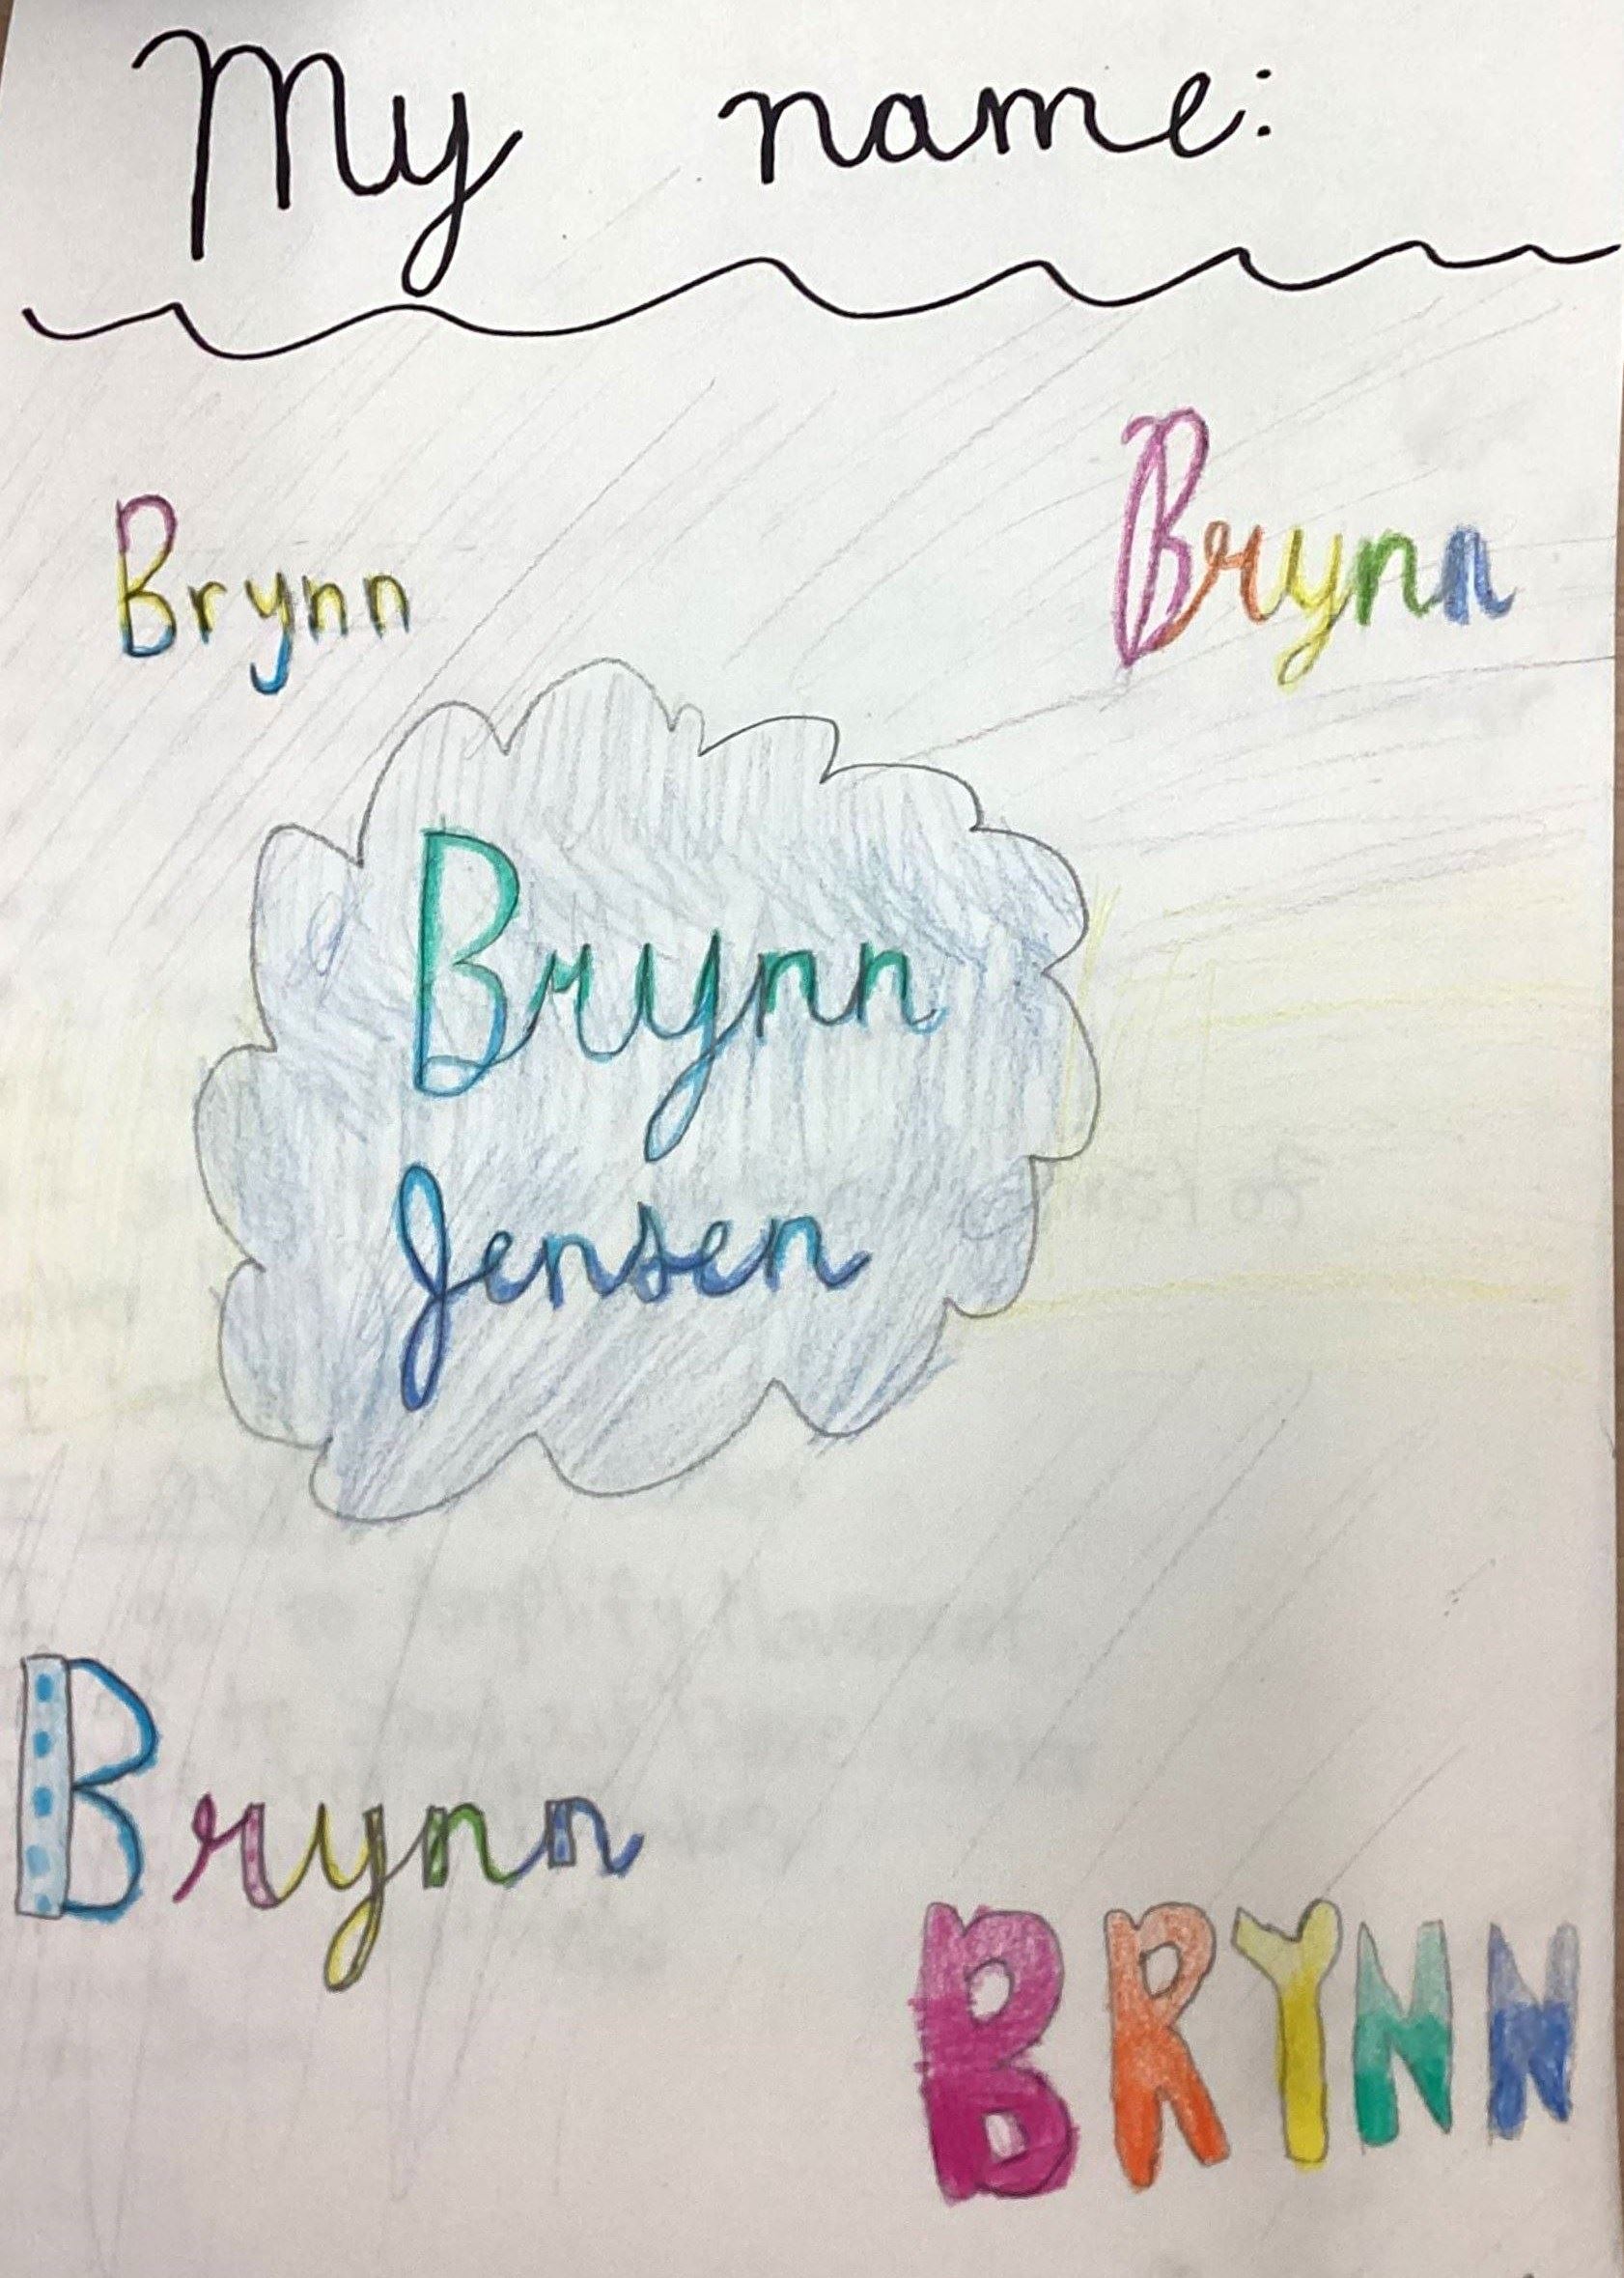 My name:
Brynn
Brynn
Brynn
Jensen
Brynn
BRYNN